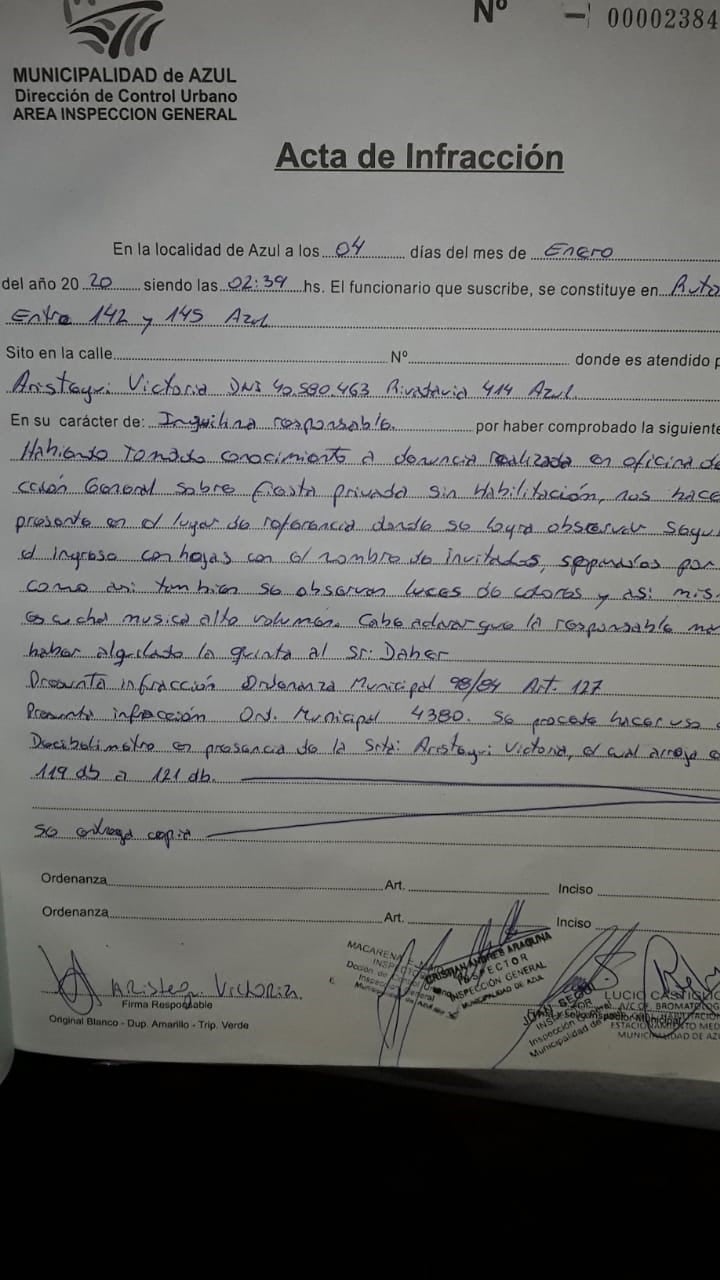 Nº - 00002384
MUNICIPALIDAD de AZUL
Dirección de Control Urbano
AREA INSPECCION GENERAL
Acta de Infracción
En la localidad de Azul a los 04 días del mes de Enero
del año 2020 siendo las 02:39 hs. El funcionario que suscribe, se constituye en Ruta
Entre 142 y 145 Azul
Sito en la calle Nº donde es atendido p
Aristegui Victoria DNI 40.590.463 Rivadavia 414 Azul.
En su carácter de: Inquilina responsable. por haber comprobado la siguiente
Habiendo Tomado conocimiento a denuncia realizada en oficina de
cción General sobre fiesta privada sin Habilitación, nos hace
presente en el lugar de referencia donde se logra observar segu
el ingreso con hojas con el nombre de invitados, por
como asi tambien se observan luces de colores y asi mis
escucha musica alto volumen. Cabe aclarar que la responsable
haber alquilado la quinta al Sr: Daher
Presunta infracción Ordenanza Municipal 98/84 Art. 127
Presunta infracción Ord. Municipal 4380. Se procede hacer uso
Decibelimetro en presencia de la Srta: Aristegui Victoria, el cual arroja
119 db a 121 db.
se entrega copia
Ordenanza Art. Inciso
Ordenanza Art. Inciso
Aristegui Victoria
Firma Responsable
Original Blanco - Dup. Amarillo - Trip. Verde
MACARENA
CRISTIAN ANDRES ARAQUNA
INSPECTOR
INSPECCIÓN GENERAL
MUNICIPALIDAD DE AZUL
JUAN SEGUI
Inspección General
Municipalidad de
LUCIO
A/C OF. BROMATOLOG
ESTACIONAMIENTO MED
MUNICIPALIDAD DE AZU